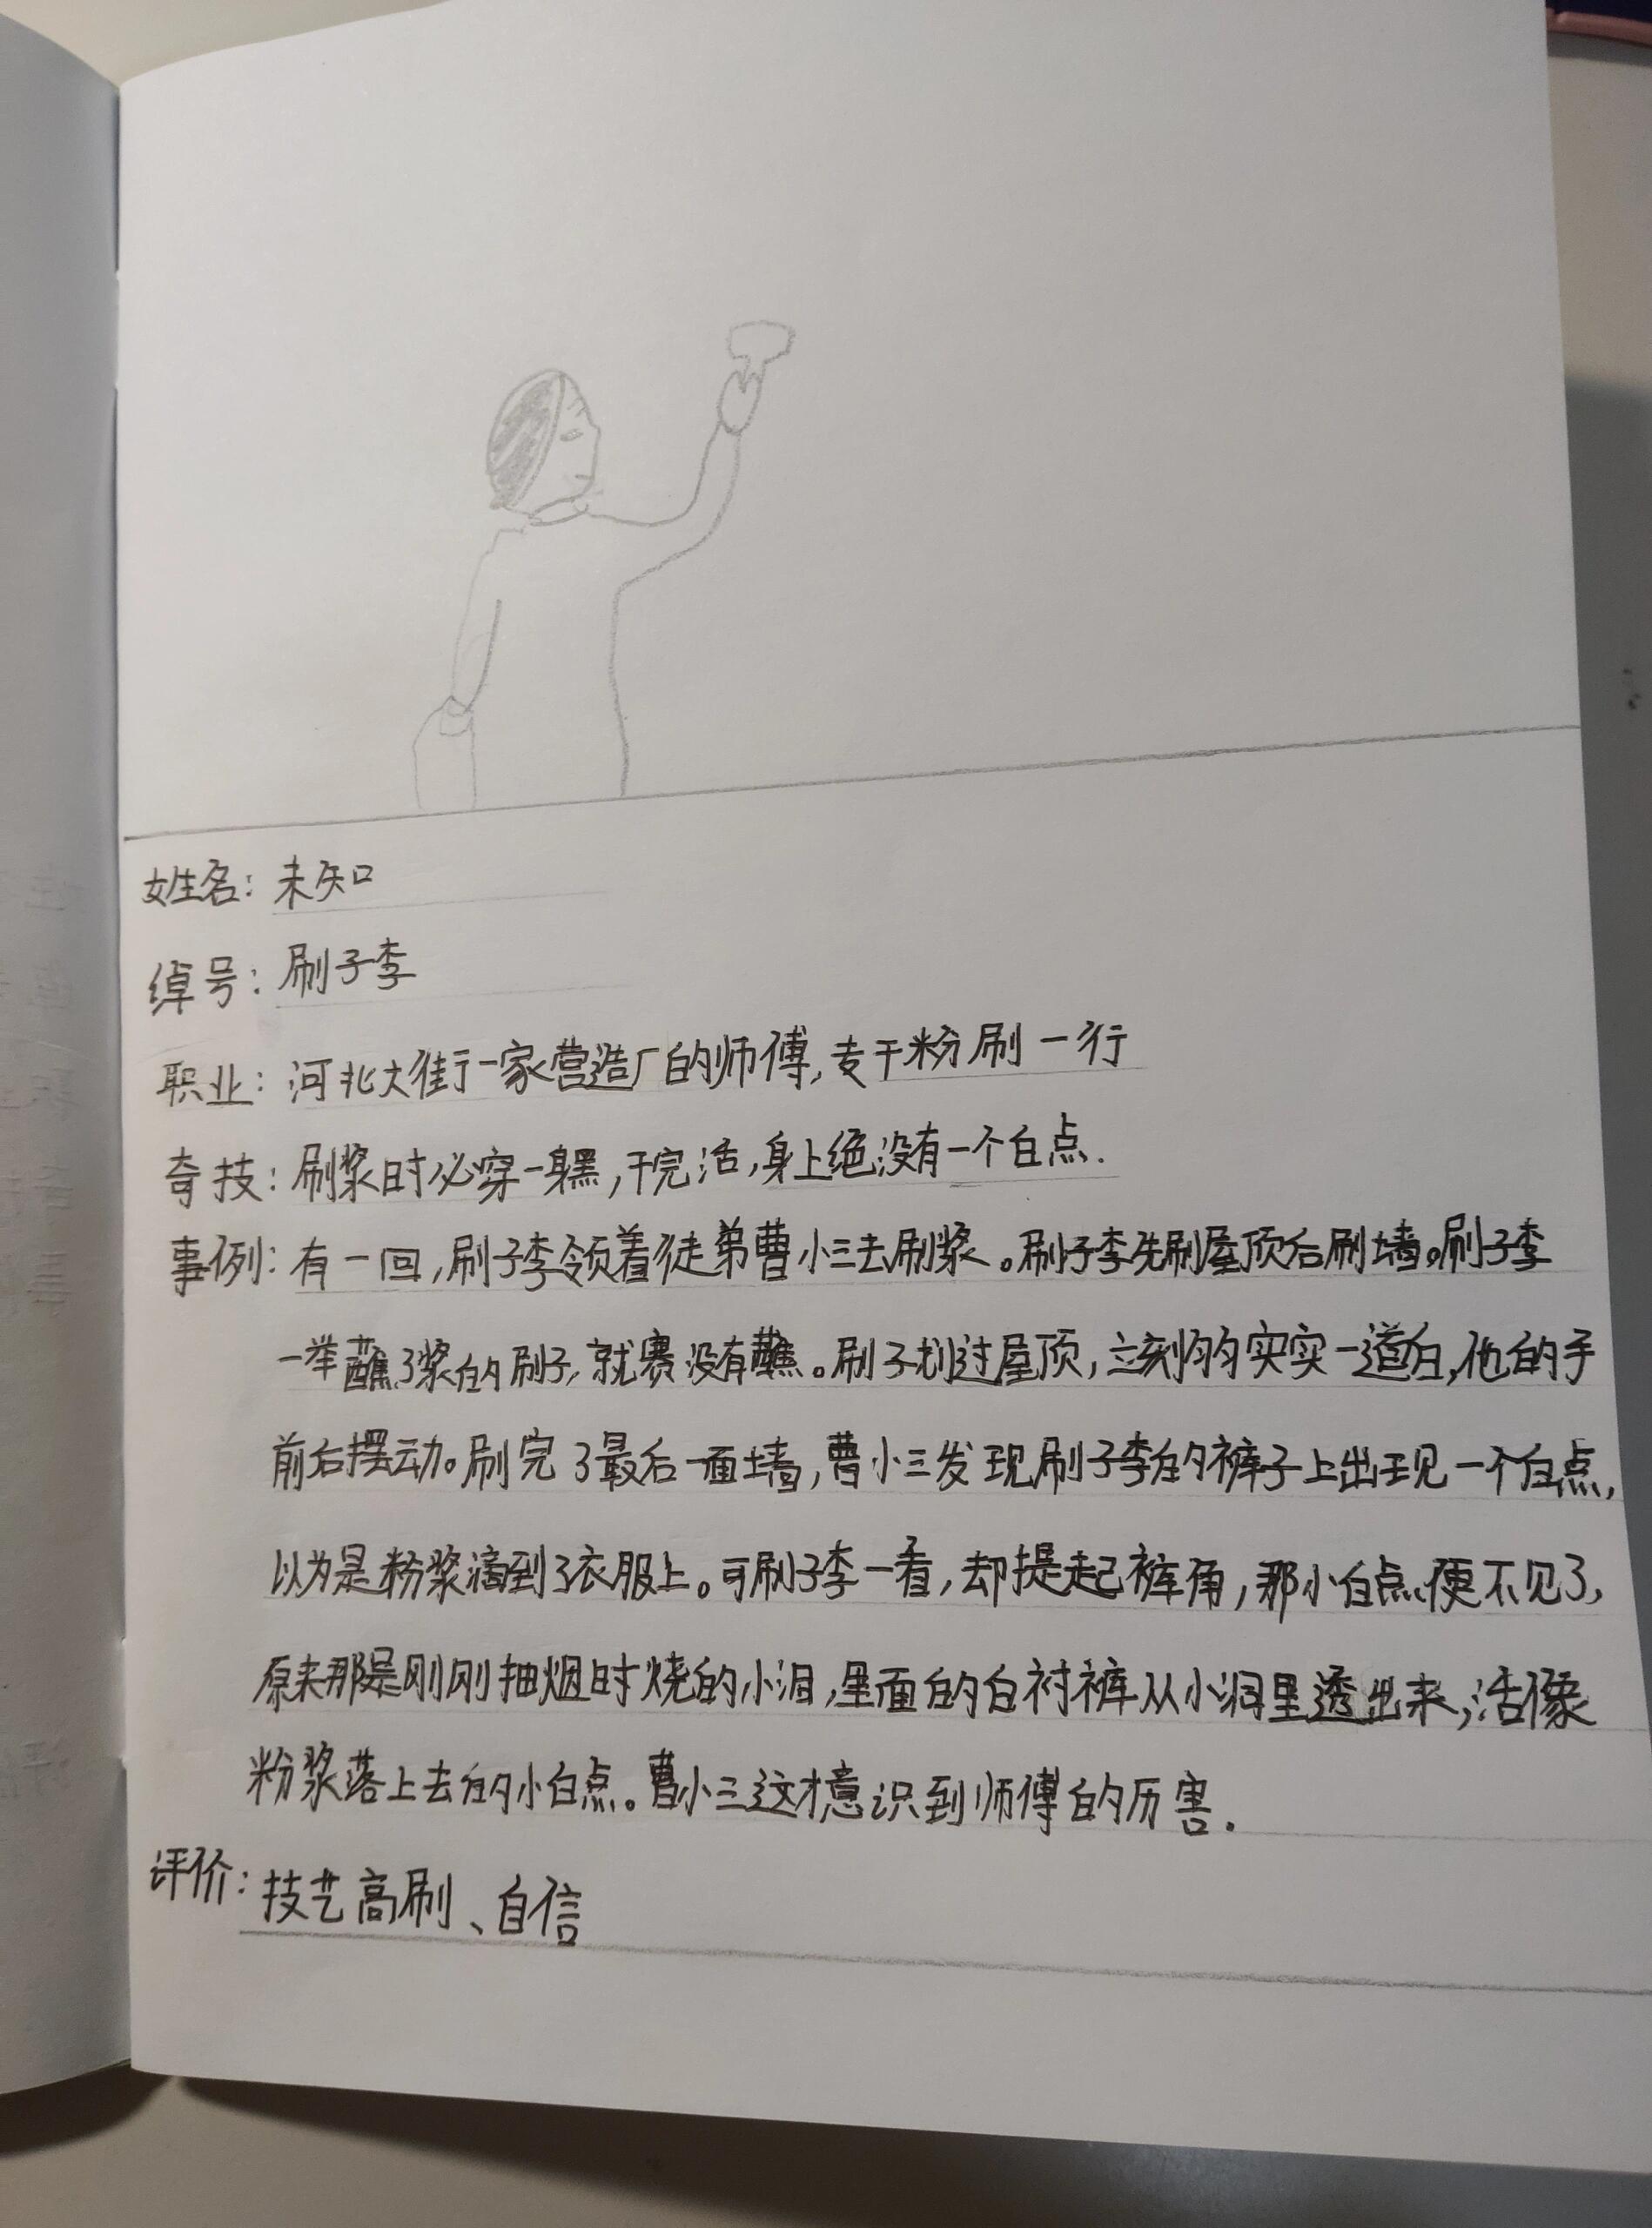 姓名：未知
绰号：刷子李
职业：河北大街一家营造厂的师傅，专干粉刷一行
奇技：刷浆时必穿一身黑，干完活，身上绝没有一个白点.
事例：有一回，刷子李领着徒弟曹小三去刷浆。刷子李先刷屋顶后刷墙。刷子李
一举蘸了浆的刷子，就赛没有蘸。刷子划过屋顶，立刻匀匀实实一道白，他的手
前后摆动。刷完了最后一面墙，曹小三发现刷子李的裤子上出现一个白点，
以为是粉浆滴到了衣服上。可刷子李一看，却提起裤角，那小白点便不见了，
原来那是刚刚抽烟时烧的小洞，里面的白衬裤从小洞里透出来，活像
粉浆落上去的小白点。曹小三这才意识到师傅的厉害.
评价：技艺高刷、自信